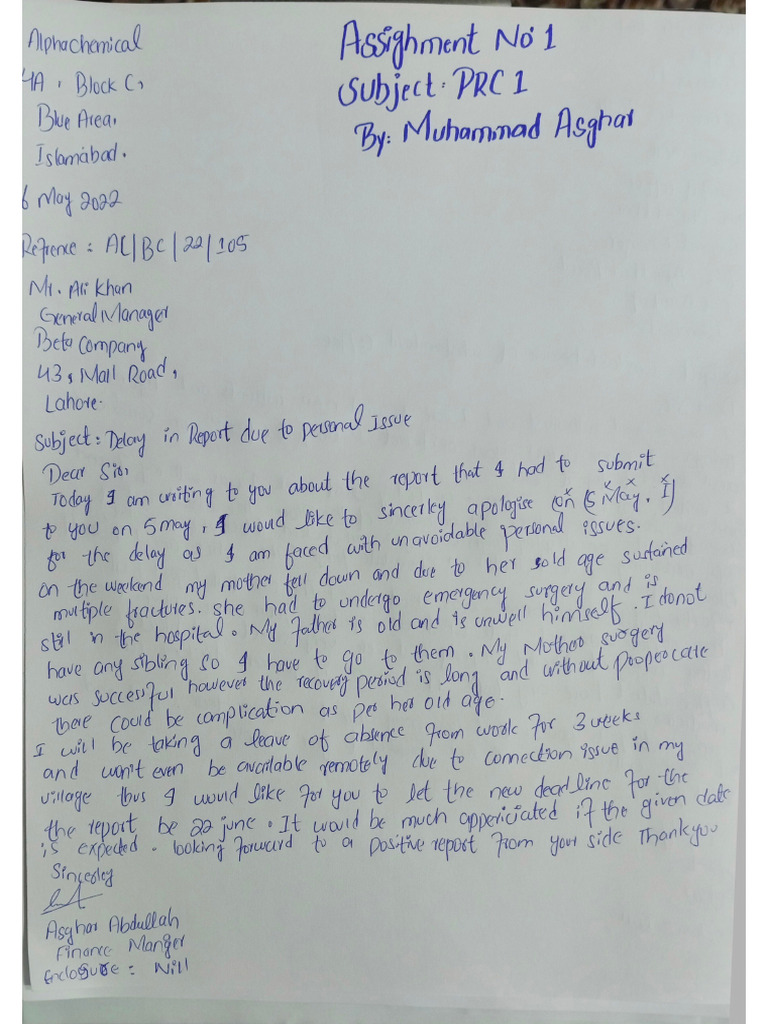 Alphachemical
4A, Block C,
Blue Area,
Islamabad.
6 May 2022
Refrence : AC/BC/22/105
Mr. Ali Khan
General Manager
Beta Company
43, Mall Road,
Lahore.
Assighment No 1
Subject: PRC 1
By: Muhammad Asghar
Subject: Delay in Report due to personal Issue
Dear Sir,
Today I am writing to you about the report that I had to submit
to you on 5 may, I would like to sincerley apologise (on 5 May, I)
for the delay as I am faced with unavoidable personal issues.
on the weekend my mother fell down and due to her old age sustained
multiple fractures. she had to undergo emergency surgery and is
still in the hospital. My father is old and is unwell himself. I donot
have any sibling so I have to go to them. My Mother surgery
was successful however the recovery period is long and without propercare
there could be complication as per her old age.
I will be taking a leave of absence from work for 3 weeks
and won't even be available remotely due to connection issue in my
village thus I would like for you to let the new deadline for the
the report be 22 june. It would be much appericiated if the given date
is expected. looking forward to a positive report from your side Thankyou
Sincerley
Asghar Abdullah
Finance Manger
Enclosure: Nill